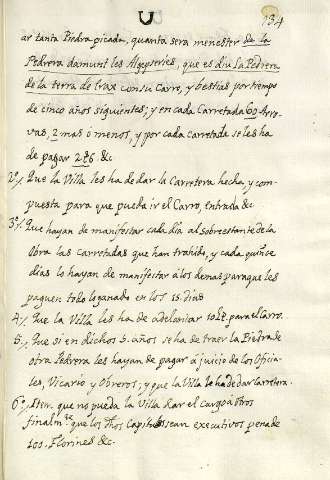 134
ar tanta Piedra picada, quanta sera menester de la
Pedrera damunt les Algepseries, que es diu La Pedrera
de la terra de Irax con su Carro, y bestias por tiempo
de cinco años siguientes; y en cada Carretada 60 Arro-
vas, 2 mas o menos, y por cada carretada se les ha
de pagar &c
2º,, Que la Villa les ha de dar la Carretera hecha, y com-
puesta para que pueda ir el Carro, entrada &c
3º,, Que hayan de manifestar cada día al sobrestante de la
Obra las Carretadas que han trahido, y cada quince
dias lo hayan de manifestar a los demas para que les
paguen todo lo ganado en los 15. dias
4,, Que la Villa les ha de adelantar para el Carro.
5,, Que si en dichos 5. años se ha de traer la Piedra de
otra Pedrera les hayan de pagar á juicio de los Oficia-
les, Vicario y Obreros; y que la Villa le ha de dar Carretera.
6º,, Item. que no pueda la Villa dar el cargo á otros
finalmte. que los dhos Capitols sean executivos pena de
100. Florines &c.